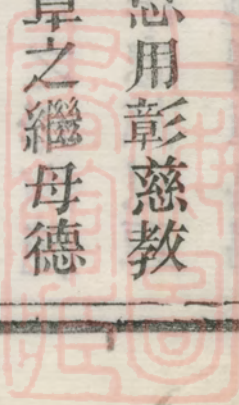 用彰慈教
之繼母德